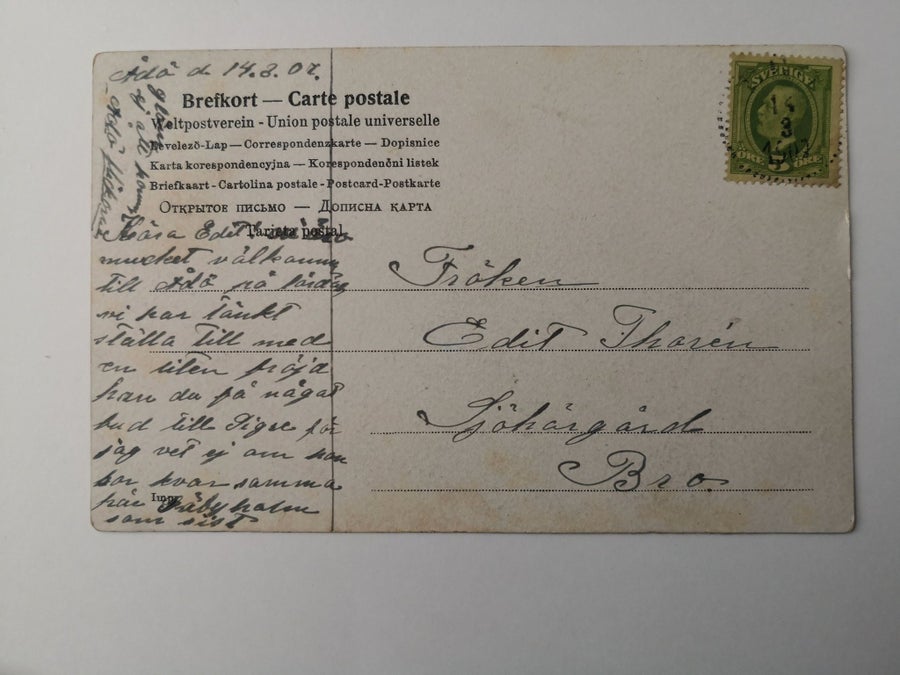 Ådö d. 14.3.07.
Brefkort — Carte postale
Weltpostverein - Union postale universelle
Levelezö-Lap — Correspondenzkarte — Dopisnice
Karta korespondencyjna — Korespondenční listek
Briefkaart - Cartolina postale - Postcard - Postkarte
Открытое письмо — Дописна карта
Tarjeta postal
glöm
ej att komma
Kära Edit!
mycket välkommen
till Ådö på lördag
vi har tänkt
ställa till med
en liten fröjd
kan du få något
bud till Signe för
jag vet ej om hon
bor kvar samma
från Säbyholm
som sist
SVERIGE
5
ÖRE ÖRE
14
3
1907
Fröken
Edit Thorén
Sjöhärgård
Bro.